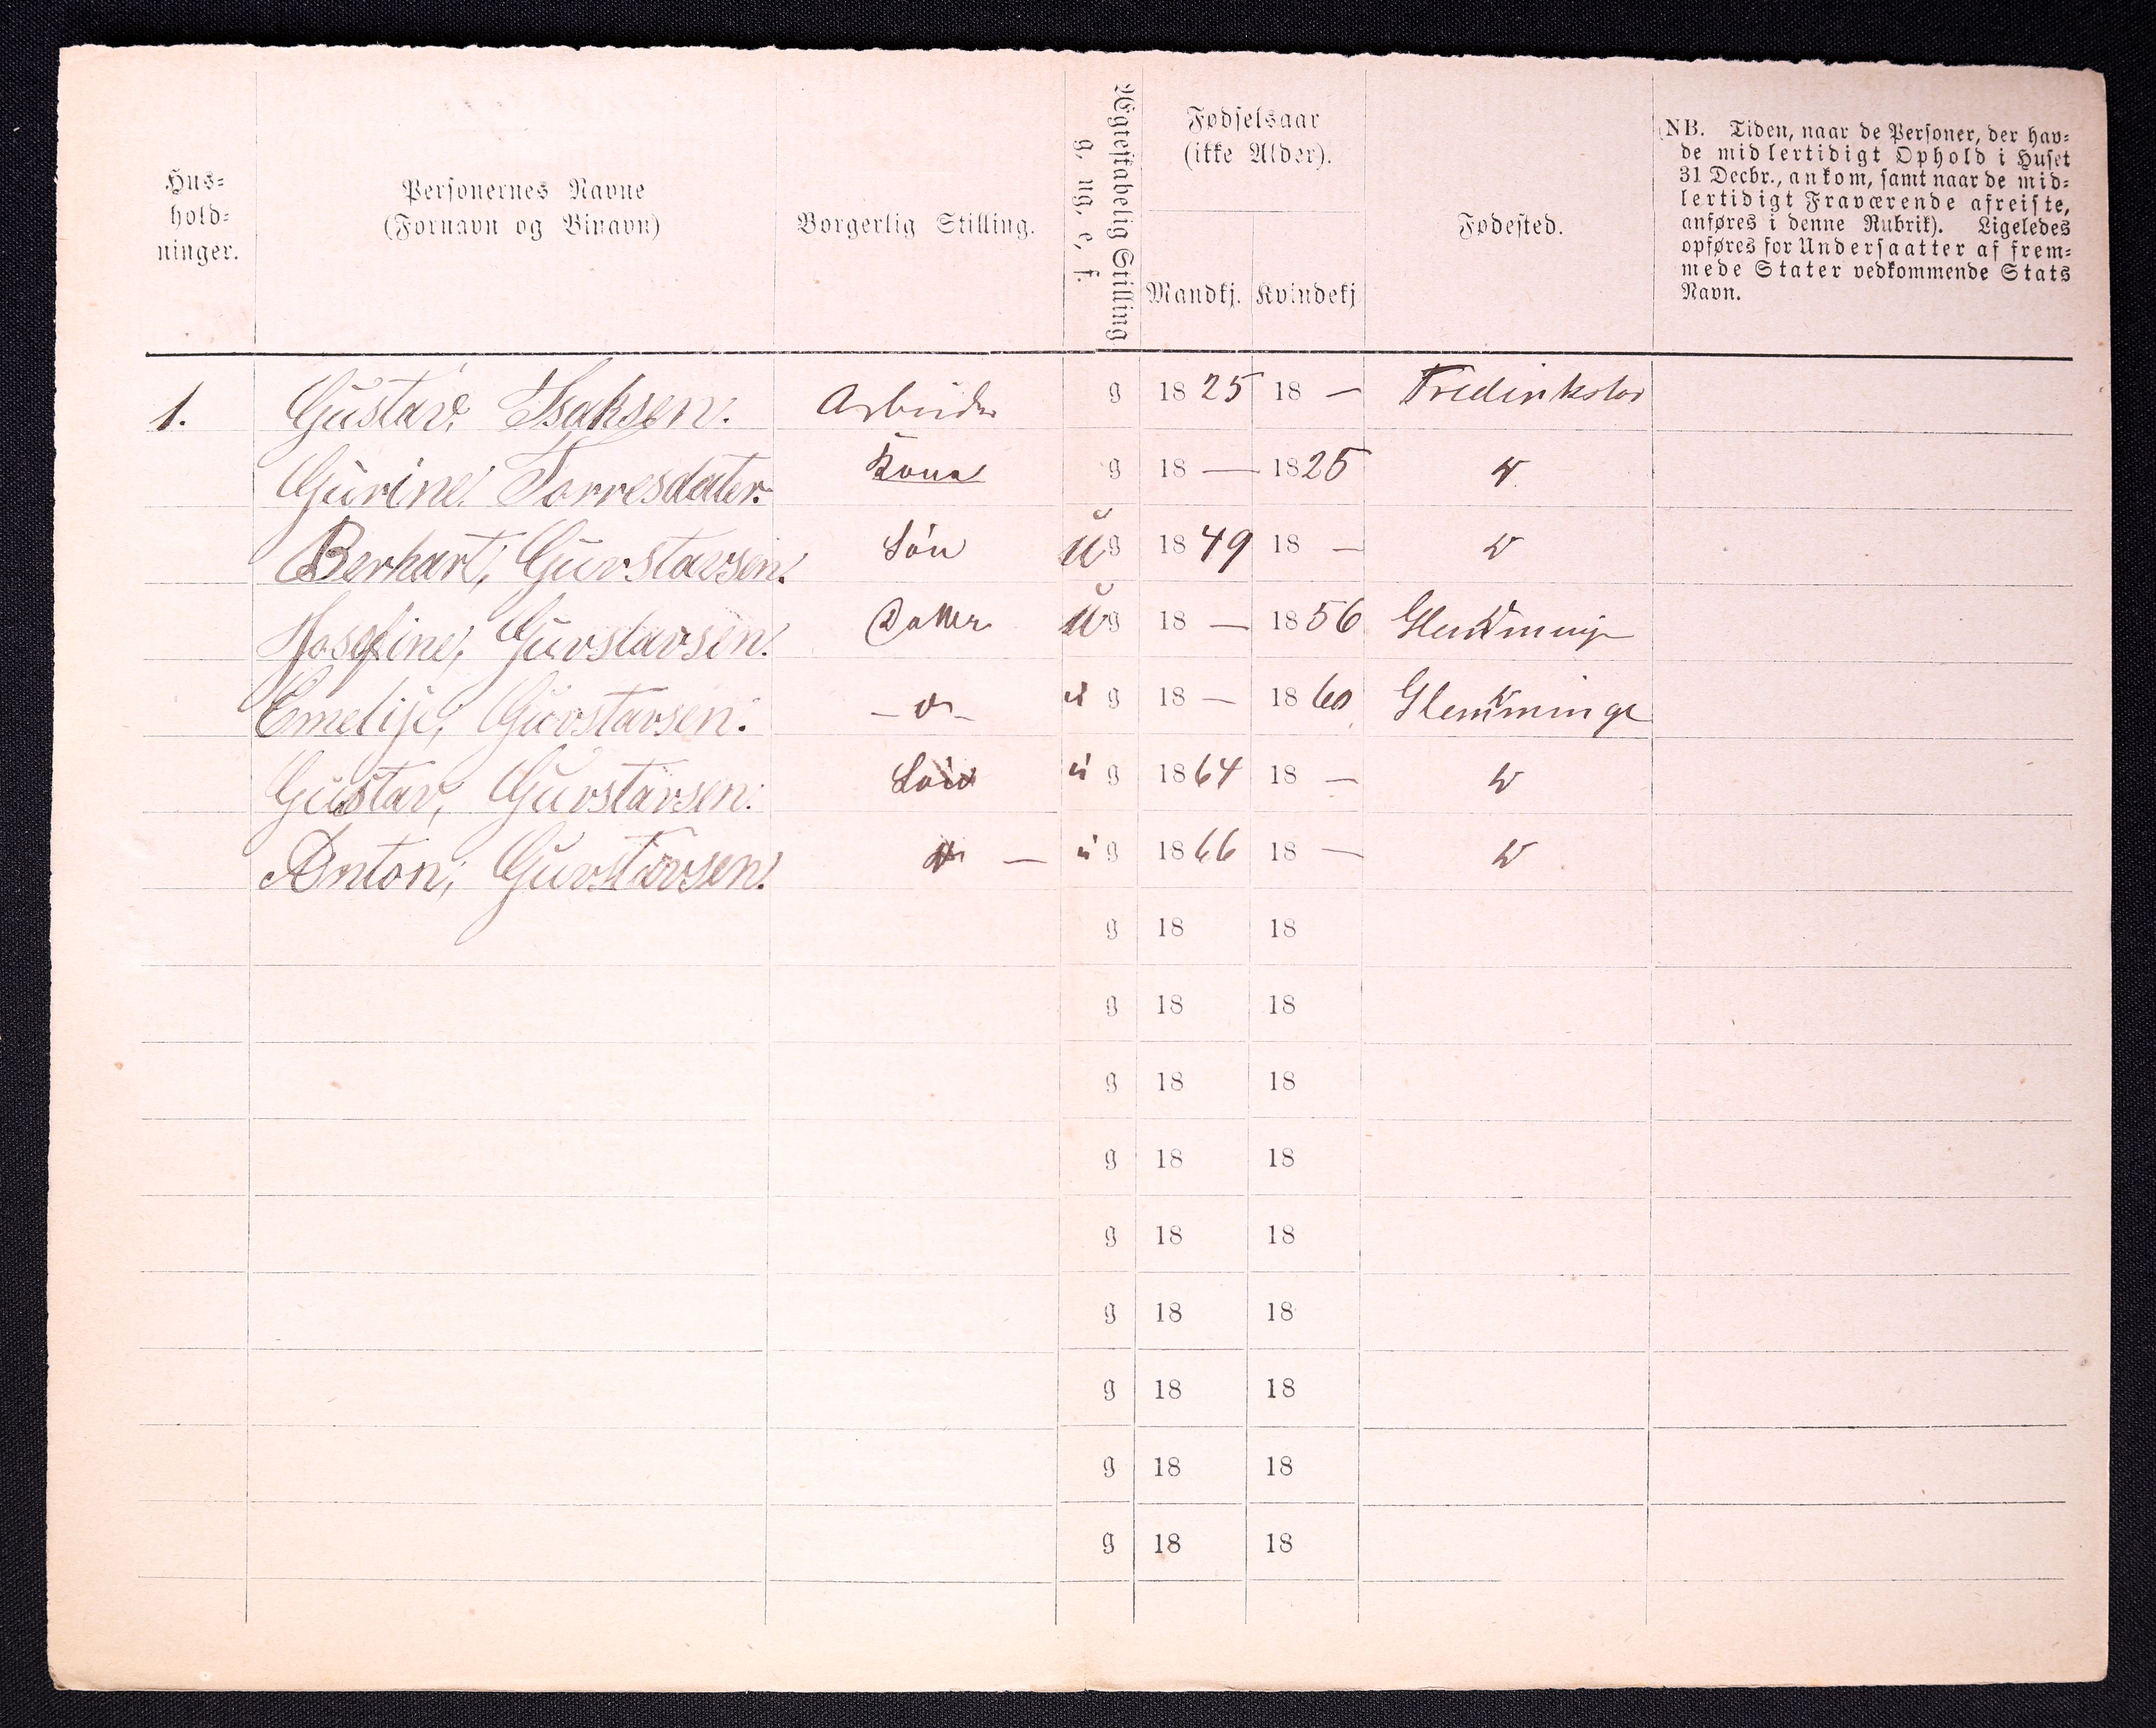 Hus=
hold=
ninger.
Personernes Navne
(Fornavn og Binavn)
Borgerlig Stilling.
Ægteskabelig Stilling
g. ug. e. f.
Fødselsaar
(ikke Alder).
Mandkj. Kvindekj
Fødested.
(NB. Tiden, naar de Personer, der hav=
de midlertidigt Ophold i Huset
31 Decbr., ankom, samt naar de mid=
lertidigt Fraværende afreiste,
anføres i denne Rubrik). Ligeledes
opføres for Undersaatter af frem=
mede Stater vedkommende Stats
Navn.
1. Gustav, Isaksen. Arbeider g 1825 18 — Fredirikstad
Gurine Torresdater. Kone g 18 — 1825 "
Berhart, Guvstavsen. Søn ug 1849 18 — "
Josefine, Guvstavsen. Datter ug 18 — 1856 Glemminge
Emelije, Guvstavsen. — " — ug 18 — 1860 Glemminge
Gustav, Guvstavsen. Søn ug 1864 18 — "
Anton, Guvstavsen. " — ug 1866 18 — "
g 18 18
g 18 18
g 18 18
g 18 18
g 18 18
g 18 18
g 18 18
g 18 18
g 18 18